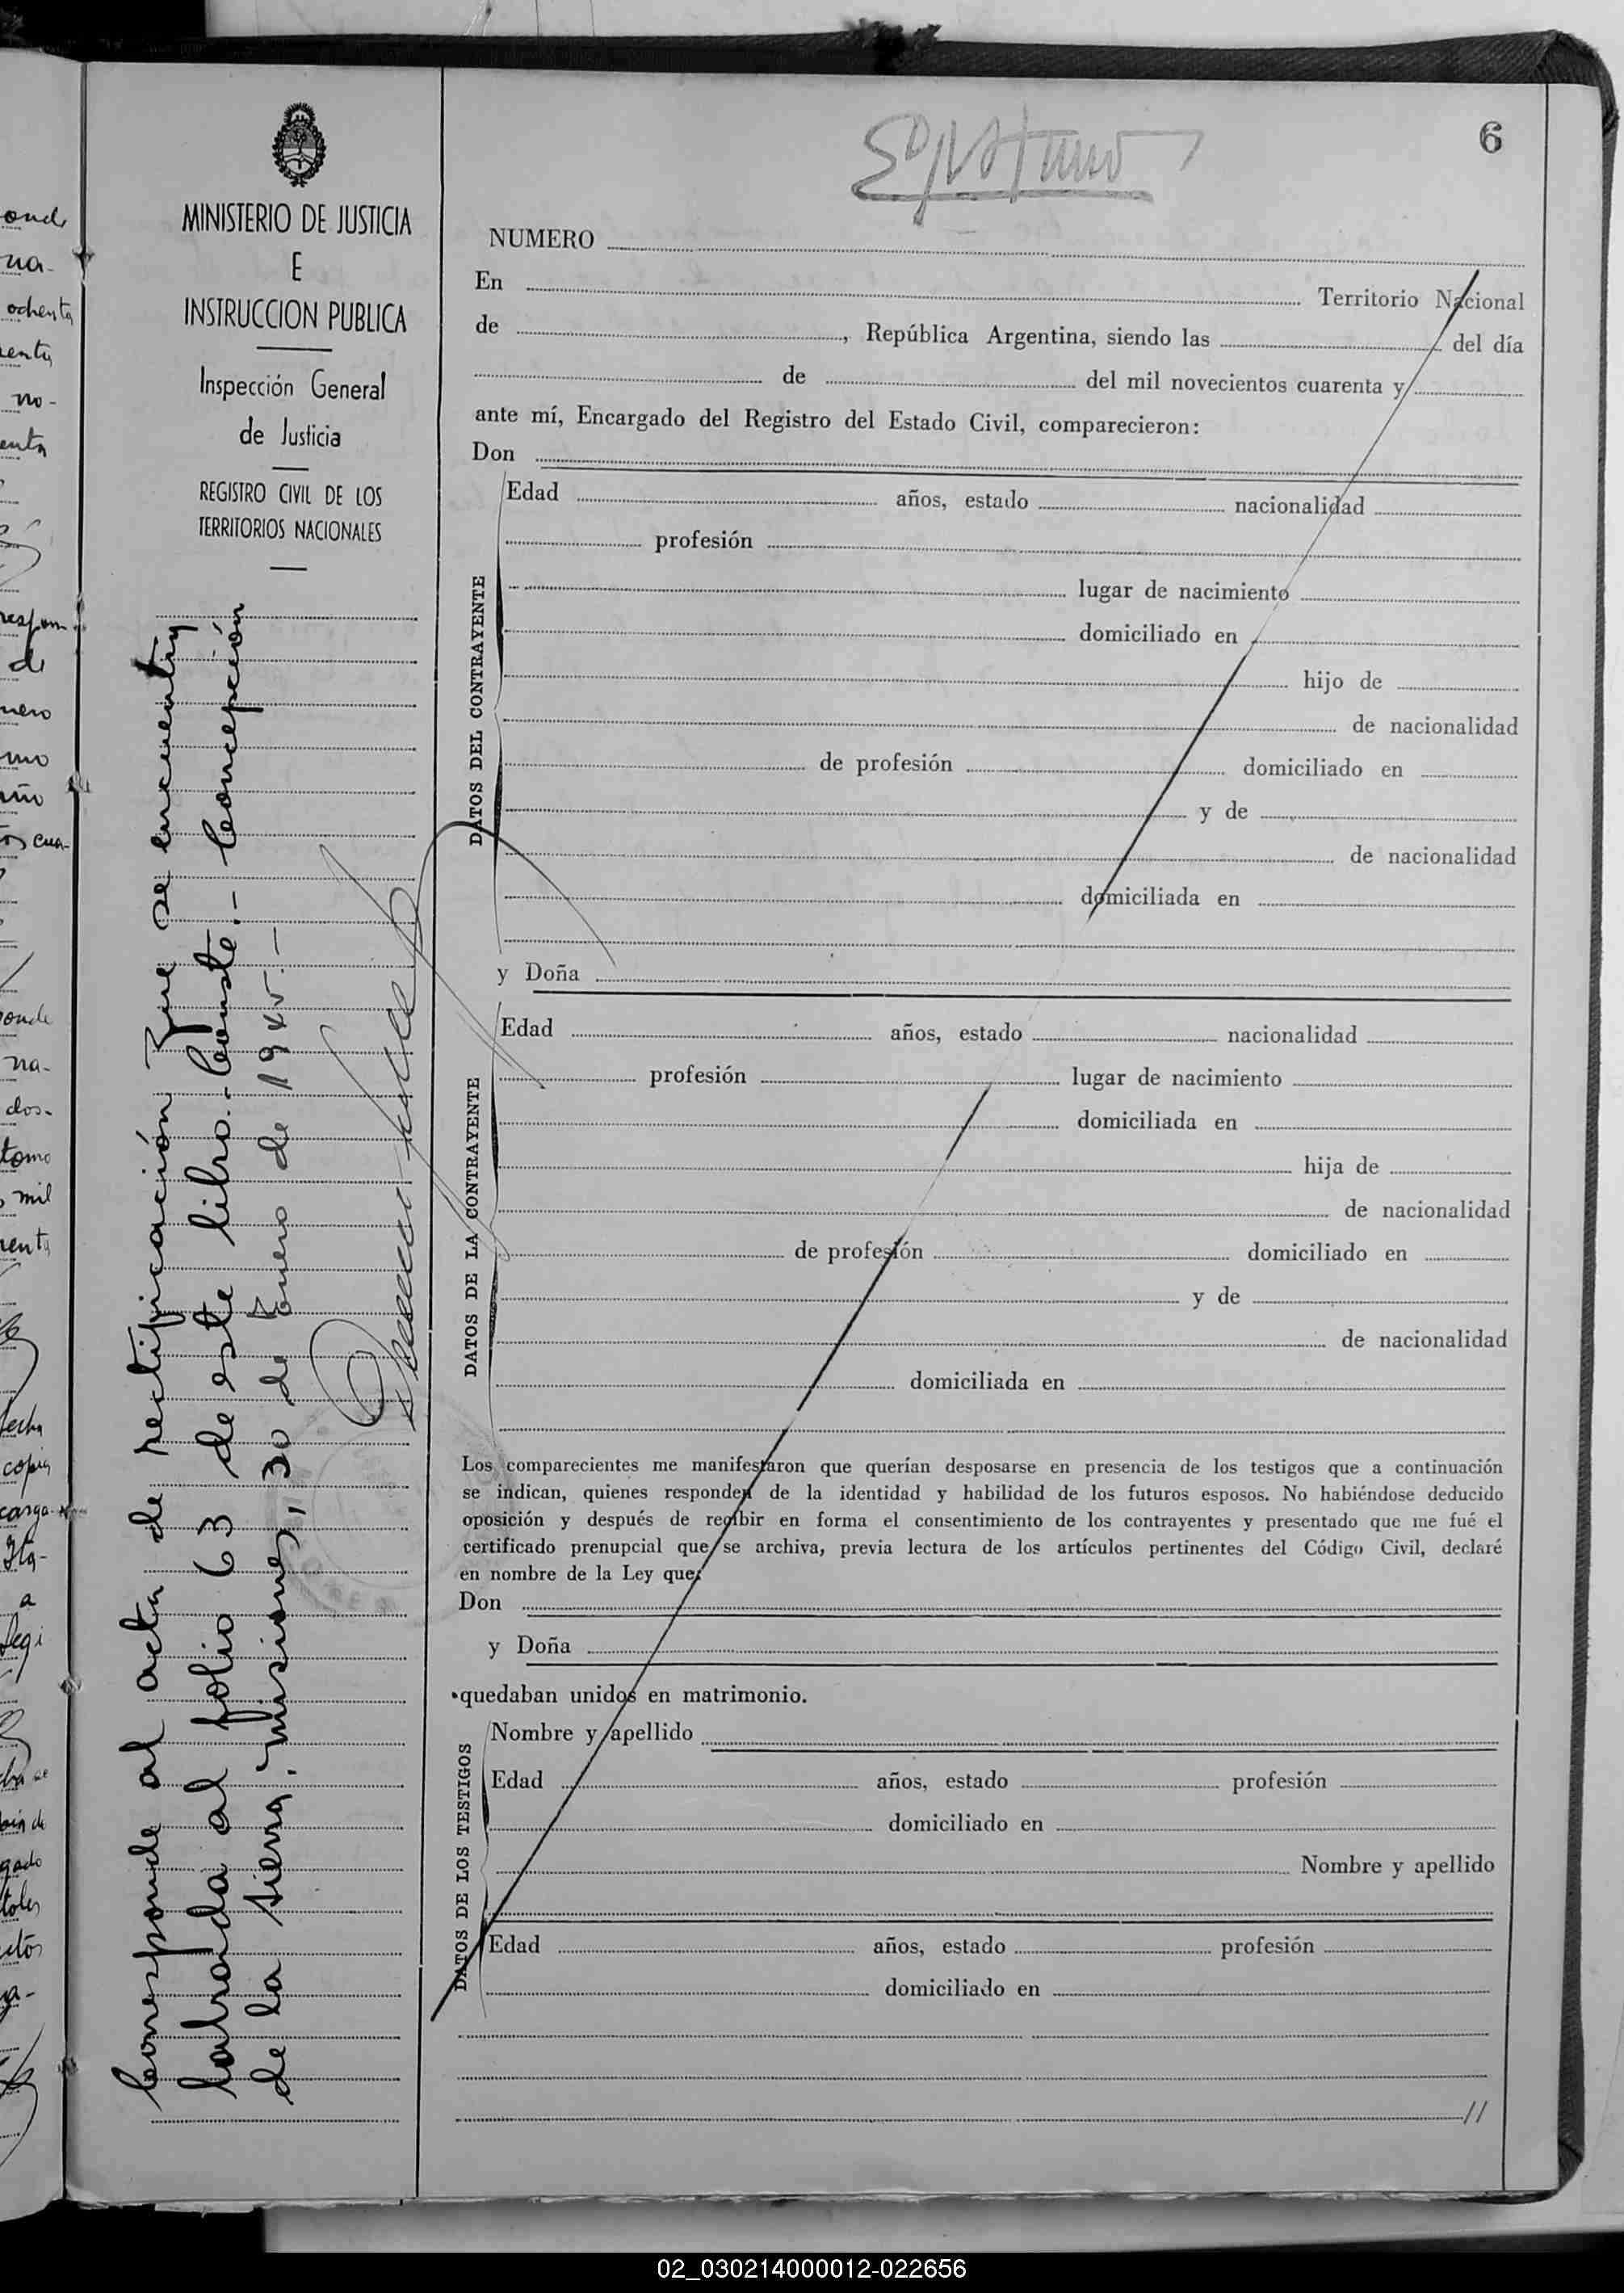 6
MINISTERIO DE JUSTICIA
E
INSTRUCCION PUBLICA
Inspección General
de Justicia
REGISTRO CIVIL DE LOS
TERRITORIOS NACIONALES
Corresponde al acta de rectificación Que se encuentra
labrada al folio 63 de este libro.- Conste.- Concepción
de la Sierra, Misiones, 30 de Enero de 1945.-
NUMERO
En Territorio Nacional
de , República Argentina, siendo las del día
de del mil novecientos cuarenta y
ante mí, Encargado del Registro del Estado Civil, comparecieron:
Don
DATOS DEL CONTRAYENTE
Edad años, estado nacionalidad
profesión
lugar de nacimiento
domiciliado en
hijo de
de nacionalidad
de profesión domiciliado en
y de
de nacionalidad
domiciliada en
y Doña
DATOS DE LA CONTRAYENTE
Edad años, estado nacionalidad
profesión lugar de nacimiento
domiciliada en
hija de
de nacionalidad
de profesión domiciliado en
y de
de nacionalidad
domiciliada en
Los comparecientes me manifestaron que querían desposarse en presencia de los testigos que a continuación
se indican, quienes responden de la identidad y habilidad de los futuros esposos. No habiéndose deducido
oposición y después de recibir en forma el consentimiento de los contrayentes y presentado que me fué el
certificado prenupcial que se archiva, previa lectura de los artículos pertinentes del Código Civil, declaré
en nombre de la Ley que:
Don
y Doña
quedaban unidos en matrimonio.
DATOS DE LOS TESTIGOS
Nombre y apellido
Edad años, estado profesión
domiciliado en
Nombre y apellido
Edad años, estado profesión
domiciliado en
//
02_030214000012-022656